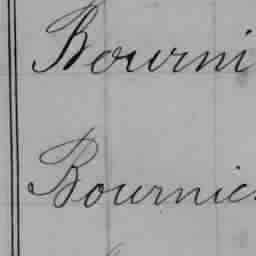 Bourni
Bournic